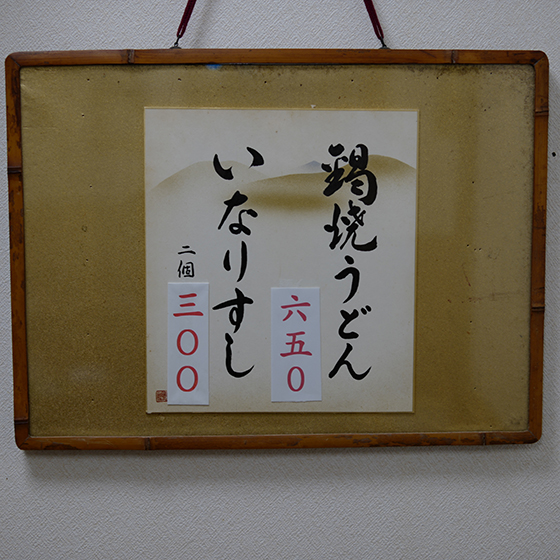 鍋焼うどん
六五〇
いなりすし
二個
三〇〇